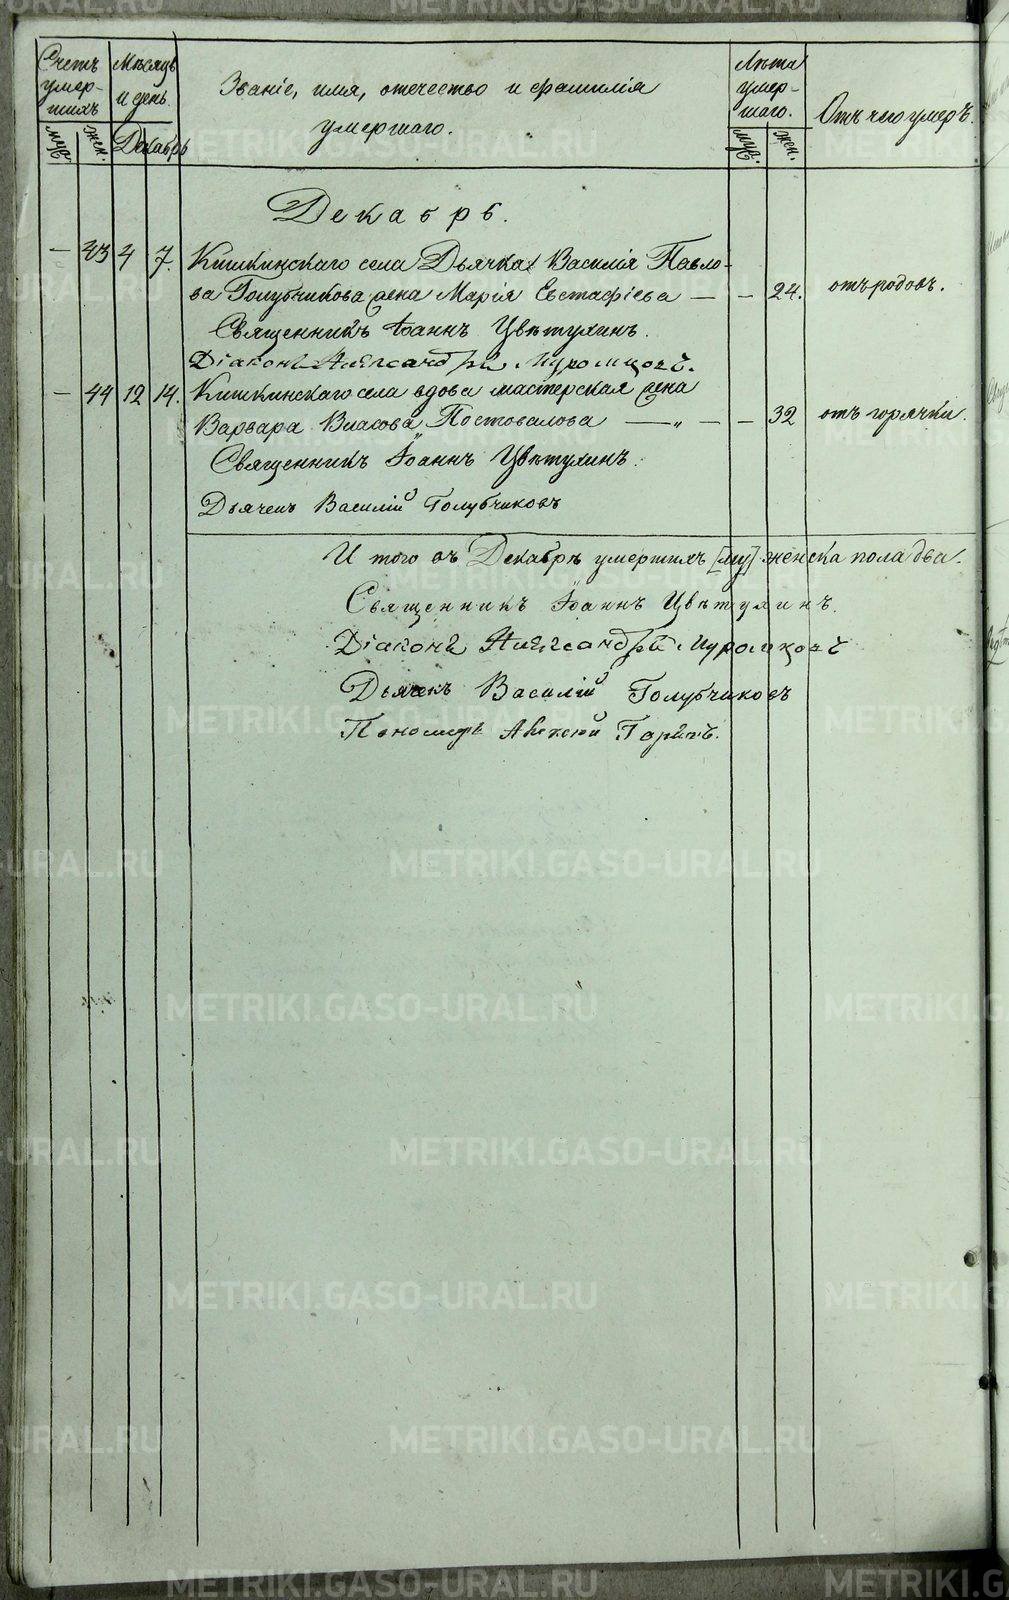 Счетъ умер-шихъ
Мѣсяцъ и день
Званіе, имя, отечество и фамилія
умершаго.
Лѣта умер-шаго.
Отъ чего умеръ.
муж.
жен.
Декабрь
муж.
жен.
Декабрь.
— 43 4 7. Кишкинскаго села Дьячка Василія Павло-
ва Голубчикова жена Марія Евстафіева — — 24. отъ родовъ.
Священникъ Іоаннъ Цвѣтухинъ.
Діаконъ Александръ Муромцовъ.
— 44 12 14. Кишкинскаго села вдова мастерская жена
Варвара Власова Постовалова — „ — — 32 отъ горячки.
Священникъ Іоаннъ Цвѣтухинъ.
Дьячекъ Василій Голубчиковъ
И того въ Декабрѣ умершихъ [му] женска пола два.
Священникъ Іоаннъ Цвѣтухинъ.
Діаконъ Александръ Муромцовъ
Дьячекъ Василій Голубчиковъ
Пономарь Алексей
METRIKI.GASO-URAL.RU